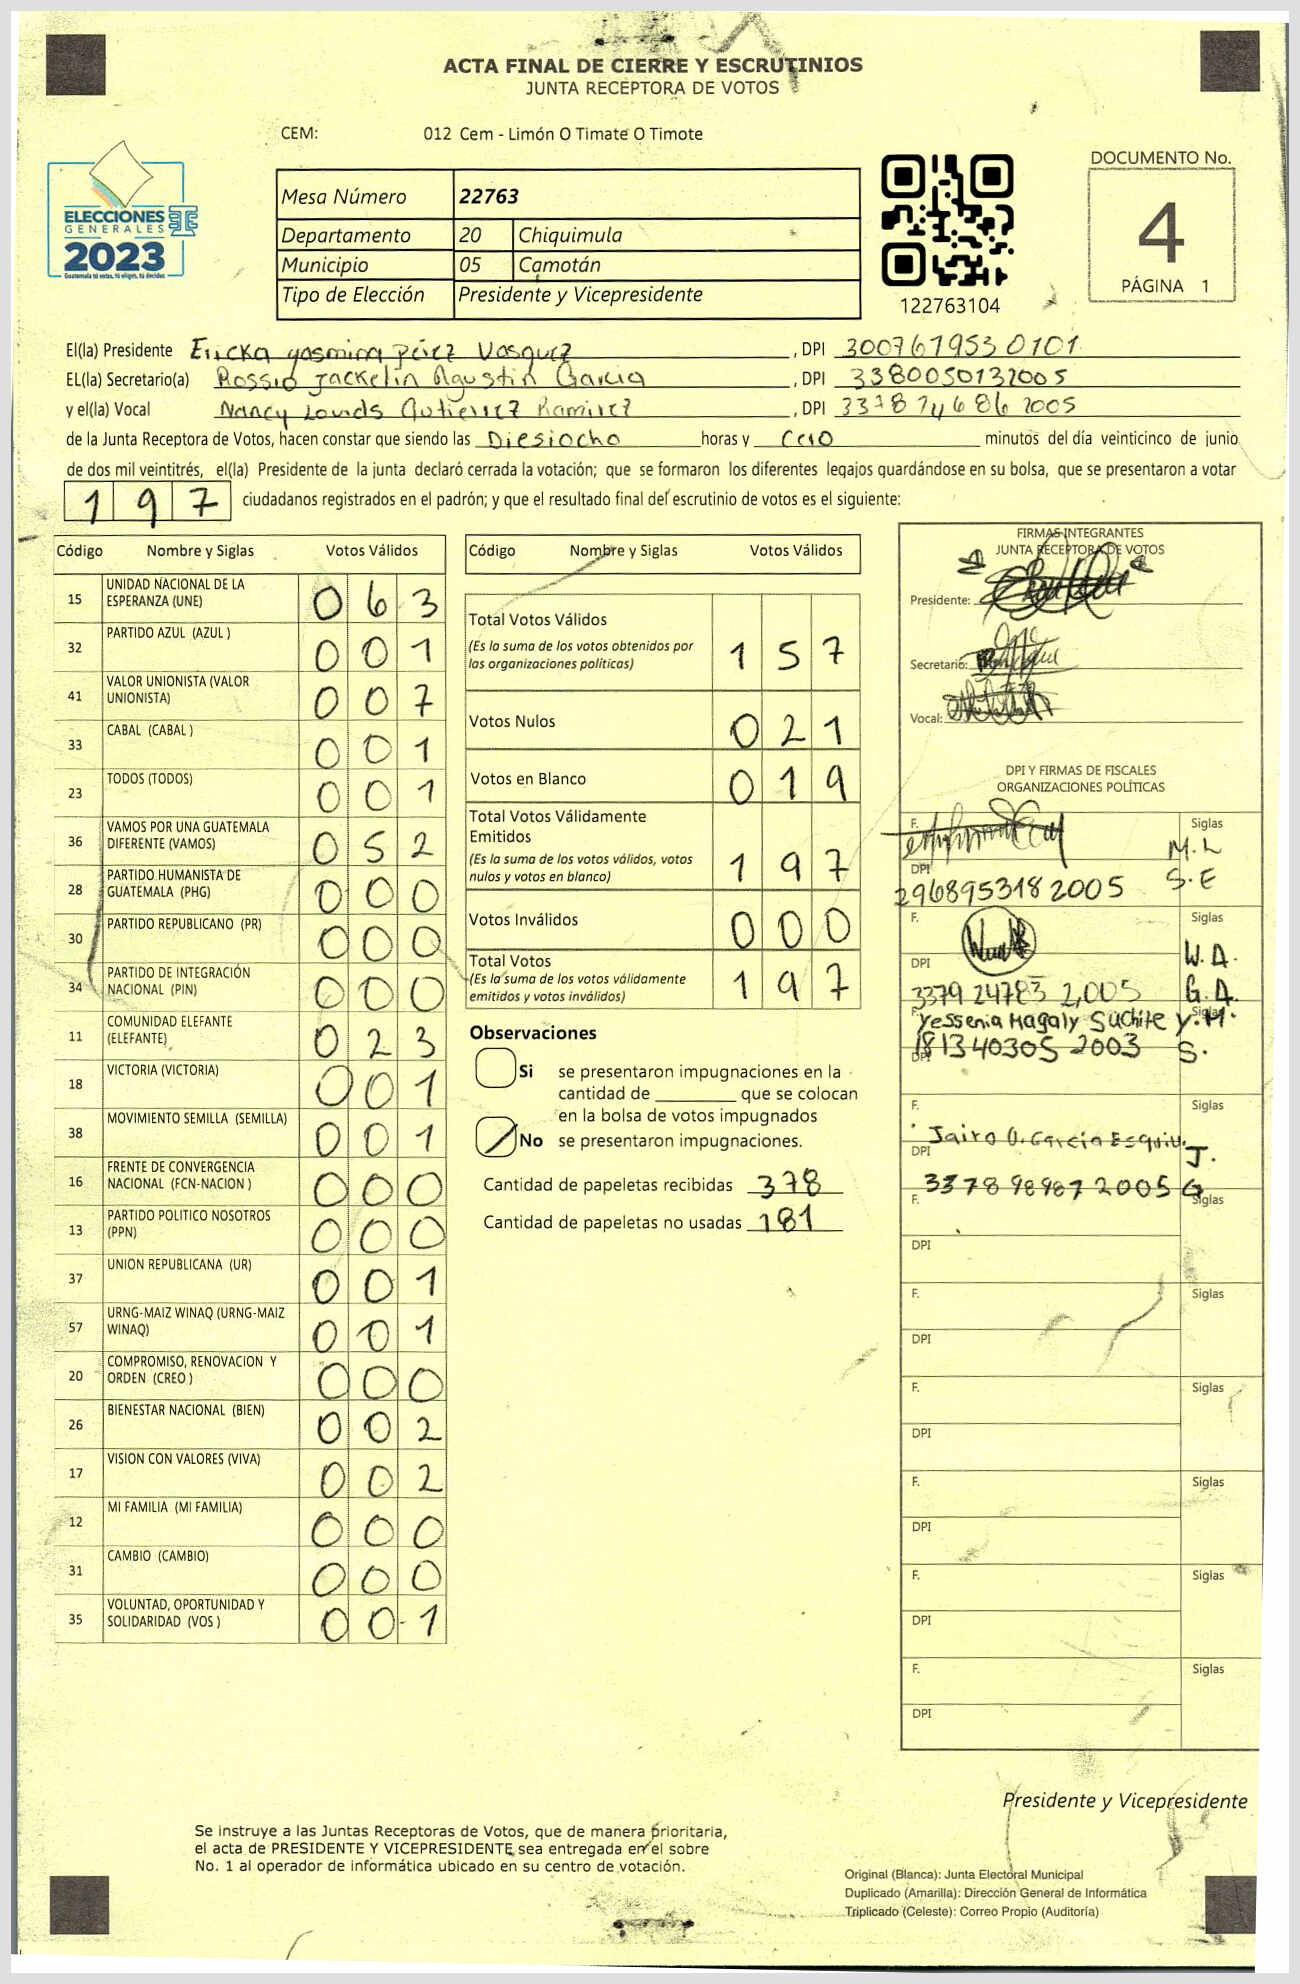 ACTA FINAL DE CIERRE Y ESCRUTINIOS
JUNTA RECEPTORA DE VOTOS
CEM: 012 Cem - Limón O Timate O Timote
DOCUMENTO No.
4
PÁGINA 1
ELECCIONES
GENERALES
2023
Guatemala tú votas, tú eliges, tú decides
Mesa Número 22763
Departamento 20 Chiquimula
Municipio 05 Camotán
Tipo de Elección Presidente y Vicepresidente
122763104
El(la) Presidente Ericka yasmina pérez Vasquez, DPI 3007619530101
EL(la) Secretario(a) Rossio Jackelin Agustin Garcia, DPI 3380050132005
y el(la) Vocal Nancy Lourds Gutierrez Ramirez, DPI 3378746862005
de la Junta Receptora de Votos, hacen constar que siendo las Diesiocho horas y Cero minutos del día veinticinco de junio
de dos mil veintitrés, el(la) Presidente de la junta declaró cerrada la votación; que se formaron los diferentes legajos guardándose en su bolsa, que se presentaron a votar
197 ciudadanos registrados en el padrón; y que el resultado final del escrutinio de votos es el siguiente:
Código Nombre y Siglas Votos Válidos
15 UNIDAD NACIONAL DE LA ESPERANZA (UNE) 063
32 PARTIDO AZUL (AZUL ) 001
41 VALOR UNIONISTA (VALOR UNIONISTA) 007
33 CABAL (CABAL ) 001
23 TODOS (TODOS) 001
36 VAMOS POR UNA GUATEMALA DIFERENTE (VAMOS) 052
28 PARTIDO HUMANISTA DE GUATEMALA (PHG) 000
30 PARTIDO REPUBLICANO (PR) 000
34 PARTIDO DE INTEGRACIÓN NACIONAL (PIN) 000
11 COMUNIDAD ELEFANTE (ELEFANTE) 023
18 VICTORIA (VICTORIA) 001
38 MOVIMIENTO SEMILLA (SEMILLA) 001
16 FRENTE DE CONVERGENCIA NACIONAL (FCN-NACION ) 000
13 PARTIDO POLITICO NOSOTROS (PPN) 000
37 UNION REPUBLICANA (UR) 001
57 URNG-MAIZ WINAQ (URNG-MAIZ WINAQ) 001
20 COMPROMISO, RENOVACION Y ORDEN (CREO ) 000
26 BIENESTAR NACIONAL (BIEN) 002
17 VISION CON VALORES (VIVA) 002
12 MI FAMILIA (MI FAMILIA) 000
31 CAMBIO (CAMBIO) 000
35 VOLUNTAD, OPORTUNIDAD Y SOLIDARIDAD (VOS ) 00-1
Código Nombre y Siglas Votos Válidos
Total Votos Válidos 157
(Es la suma de los votos obtenidos por
las organizaciones políticas)
Votos Nulos 021
Votos en Blanco 019
Total Votos Válidamente
Emitidos 197
(Es la suma de los votos válidos, votos
nulos y votos en blanco)
Votos Inválidos 000
Total Votos 197
(Es la suma de los votos válidamente
emitidos y votos inválidos)
Observaciones
Si se presentaron impugnaciones en la
cantidad de ________ que se colocan
en la bolsa de votos impugnados
No se presentaron impugnaciones.
Cantidad de papeletas recibidas 378
Cantidad de papeletas no usadas 181
FIRMAS INTEGRANTES
JUNTA RECEPTORA DE VOTOS
Presidente:
Secretario:
Vocal:
DPI Y FIRMAS DE FISCALES
ORGANIZACIONES POLÍTICAS
F. Siglas M.L
DPI S.E
2968953182005
F. Siglas
DPI W.A.
3379 24783 2,005 G.A.
F. Yessenia Magaly Suchite Siglas Y.M.
DPI 181340305 2003 S.
F. Siglas
Jairo O. García Esquiv.
DPI J.
3378989872005 G
F. Siglas
DPI
F. Siglas
DPI
F. Siglas
DPI
F. Siglas
DPI
F. Siglas
DPI
F. Siglas
DPI
Presidente y Vicepresidente
Se instruye a las Juntas Receptoras de Votos, que de manera prioritaria,
el acta de PRESIDENTE Y VICEPRESIDENTE sea entregada en el sobre
No. 1 al operador de informática ubicado en su centro de votación.
Original (Blanca): Junta Electoral Municipal
Duplicado (Amarilla): Dirección General de Informática
Triplicado (Celeste): Correo Propio (Auditoría)